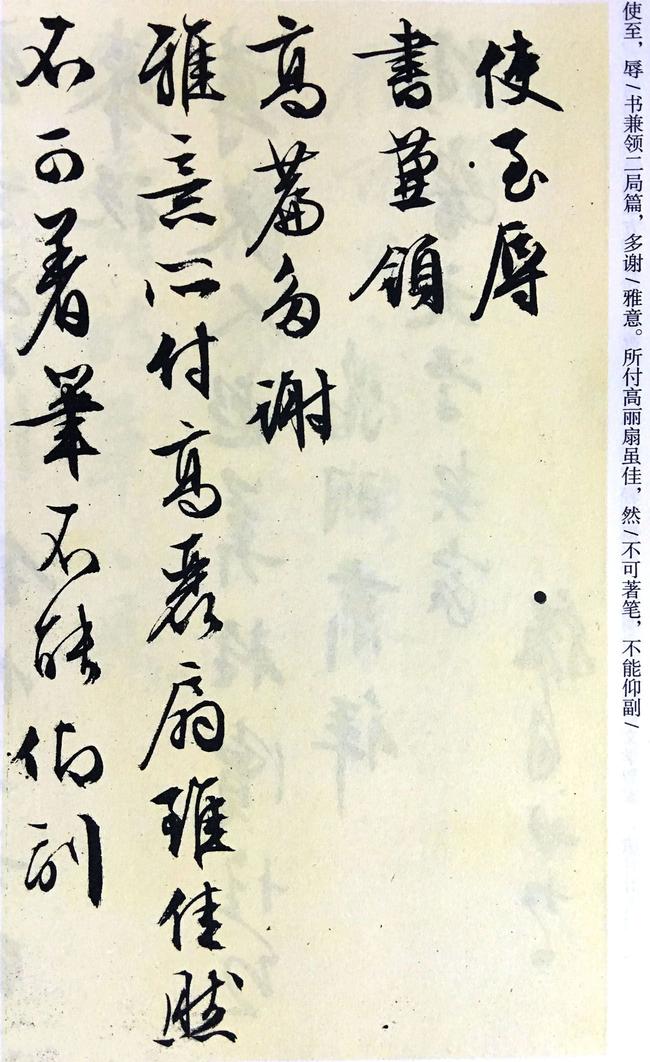 使至，辱/书兼领二局篇，多谢/雅意。所付高丽扇虽佳，然/不可著笔，不能仰副/
使至辱
書兼領
高篇多謝
雅意所付高麗扇雖佳然
不可著筆不能仰副